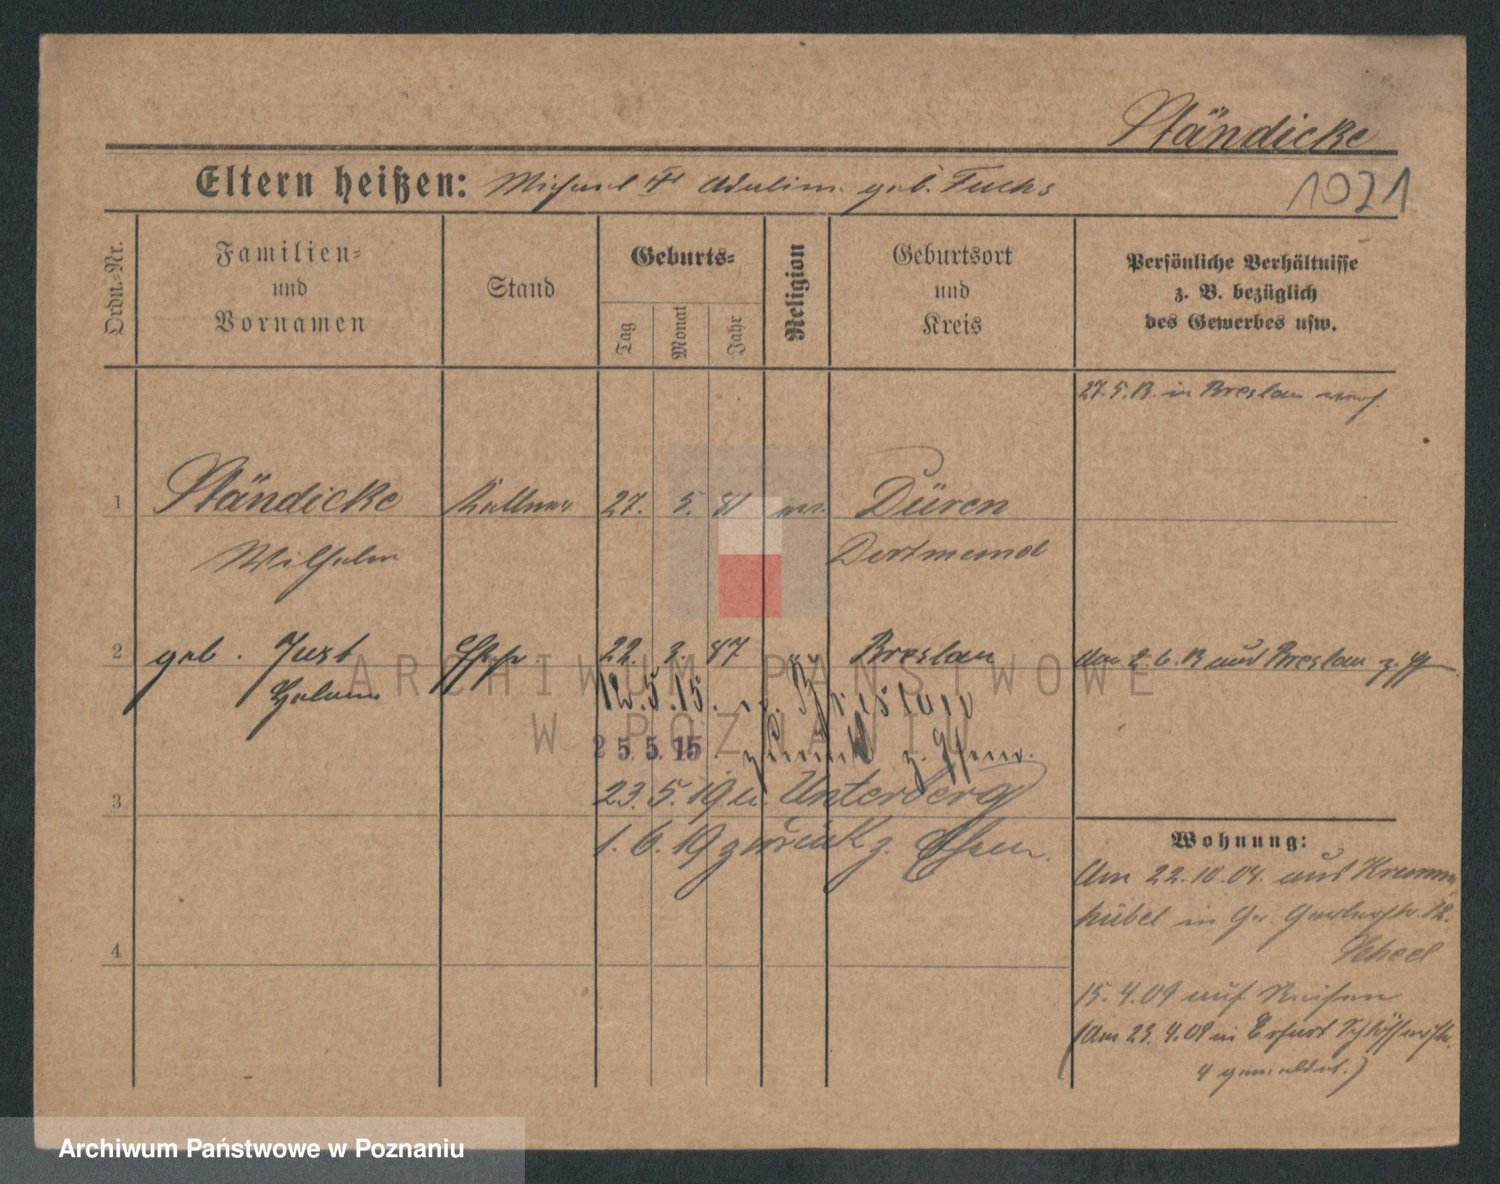 Ständicke
Eltern heißen: Michael Adeline geb. Fuchs
1071
Ordn.-Nr.
Familien-
und
Vornamen
Stand
Geburts-
Tag
Monat
Jahr
Religion
Geburtsort
und
Kreis
Persönliche Verhältnisse
z. B. bezüglich
des Gewerbes usw.
27.5.13. in Breslau
1 Ständicke Kellner 27. 5. 81 Düren
Wilhelm Dortmund
2 geb. Just 22. 3. 87 Breslau
Am 2.6.13 aus Breslau z.
Helene
12.5.15. n. Breslau
25.5.15. zurück z.
3
23.5.19 n. Unterberg
1.6.19 zurück z.
Wohnung:
Am 22.10.08. aus Krumm-
hübel in Gr. Gerberstr. 12.
Scheel
15.4.09 auf Reisen
(Am 23.4.09 in Erfurt Schlösserstr.
4 gemeldet.)
4
ARCHIWUM PAŃSTWOWE
W POZNANIU
Archiwum Państwowe w Poznaniu